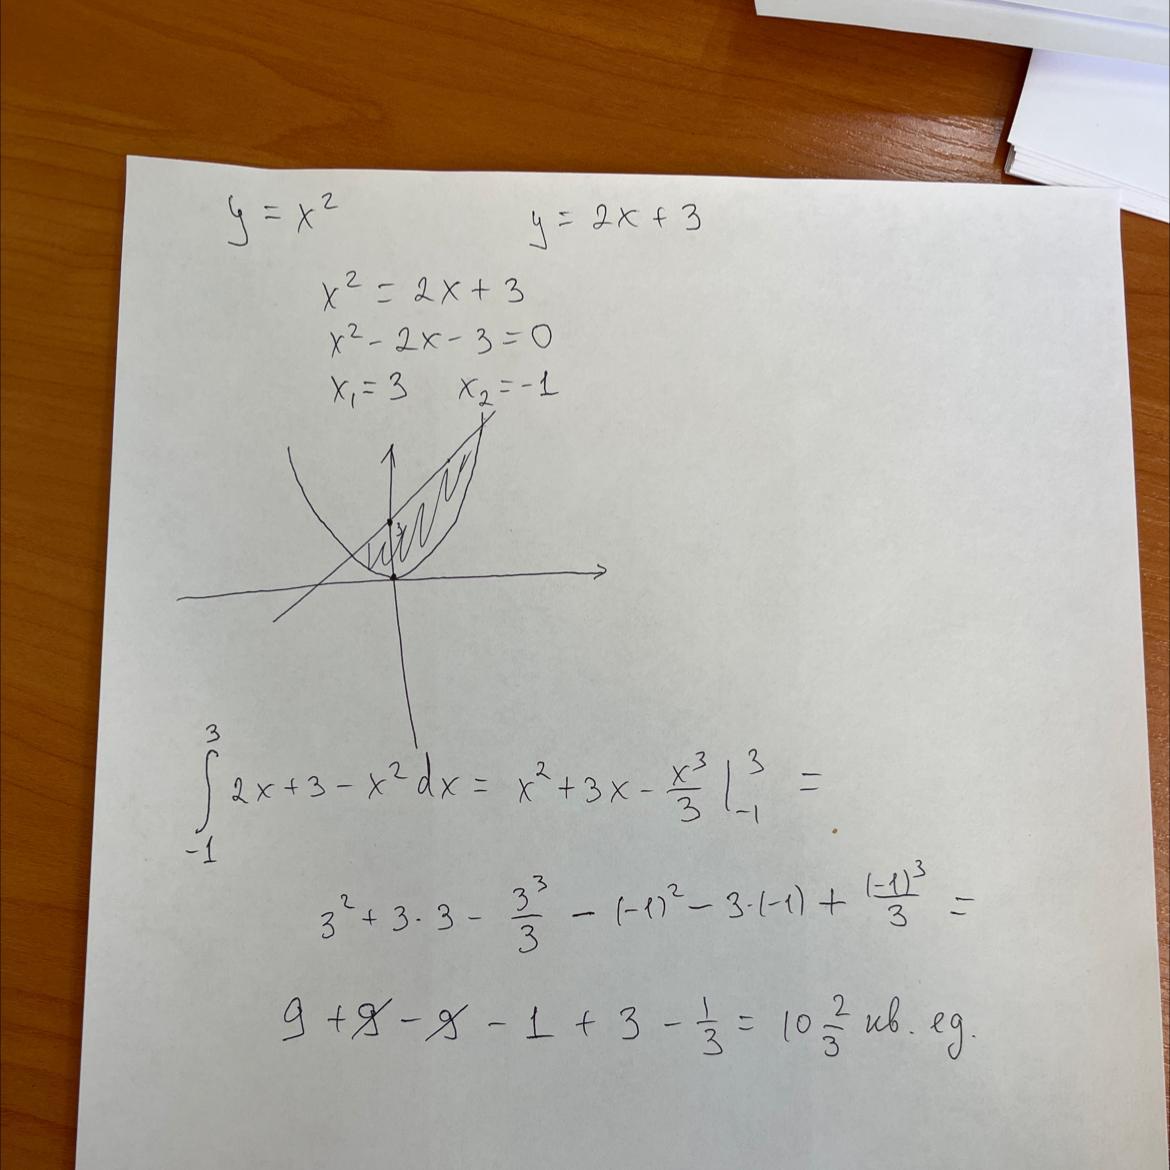 y = x² y = 2x + 3
x² = 2x + 3
x² - 2x - 3 = 0
x₁ = 3 x₂ = -1
3
∫₋₁³ 2x + 3 - x² dx = x² + 3x - x³/3 |₋₁³ =
3² + 3·3 - 3³/3 - (-1)² - 3·(-1) + (-1)³/3 =
9 + 9 - 9 - 1 + 3 - 1/3 = 10 2/3 кв. ед.